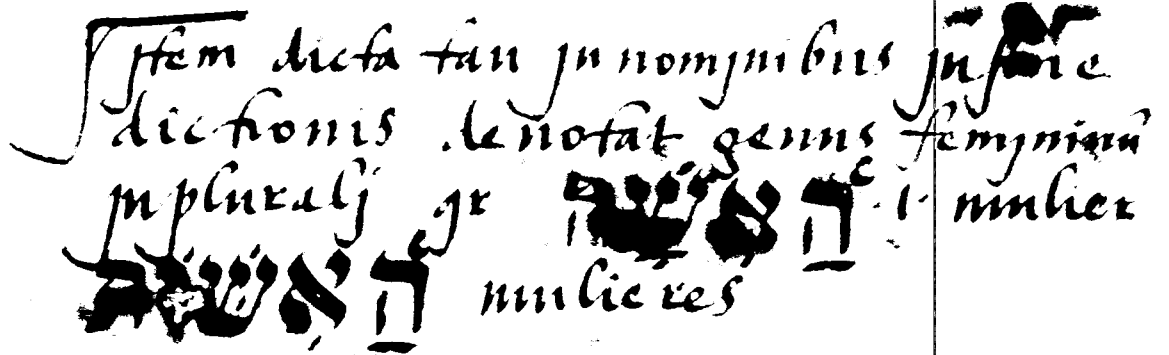 Jtem dicta tau jn nomjnibus jn fine
dictionis denotat genus femjninū
jn pluralj qr האשה .i. mulier
mulieres